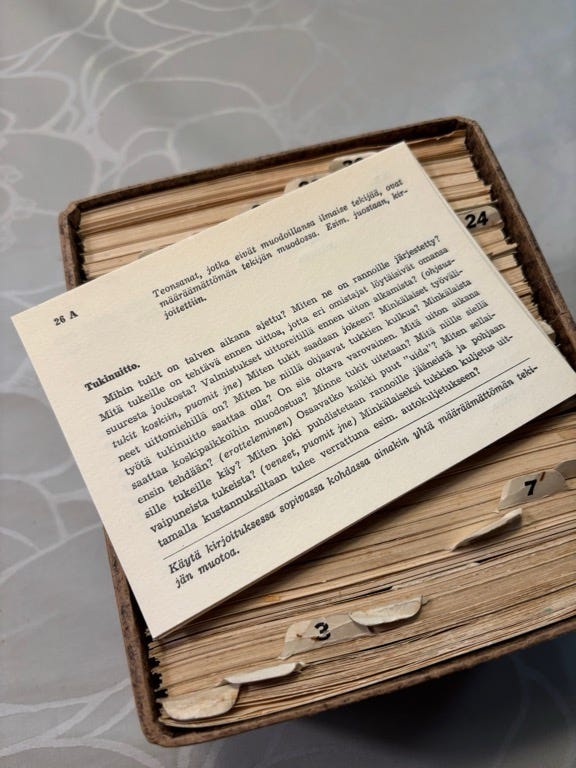 24
26 A
Teonsanat, jotka eivät muodoillansa ilmaise tekijää, ovat
määräämättömän tekijän muodossa. Esim. juostaan, kir-
joitettiin.
Tukinuitto.
Mihin tukit on talven aikana ajettu? Miten ne on rannoille järjestetty?
Mitä tukeille on tehtävä ennen uittoa, jotta eri omistajat löytäisivät omansa
suuresta joukosta? Valmistukset uittoreitillä ennen uiton alkamista? (ohjaus-
tukit koskiin, puomit jne) Miten tukit saadaan jokeen? Minkälaiset työväli-
neet uittomiehillä on? Miten he niillä ohjaavat tukkien kulkua? Minkälaista
työtä tukinuitto saattaa olla? On siis oltava varovainen. Mitä uiton aikana
saattaa koskipaikkoihin muodostua? Minne tukit uitetaan? Mitä niille siellä
ensin tehdään? (erotteleminen) Osaavatko kaikki puut "uida"? Miten sellai-
sille tukeille käy? Miten joki puhdistetaan rannoille jääneistä ja pohjaan
vaipuneista tukeista? (veneet, puomit jne) Minkälaiseksi tukkien kuljetus uit-
tamalla kustannuksiltaan tulee verrattuna esim. autokuljetukseen?
Käytä kirjoituksessa sopivassa kohdassa ainakin yhtä määräämättömän teki-
jän muotoa.
7
3